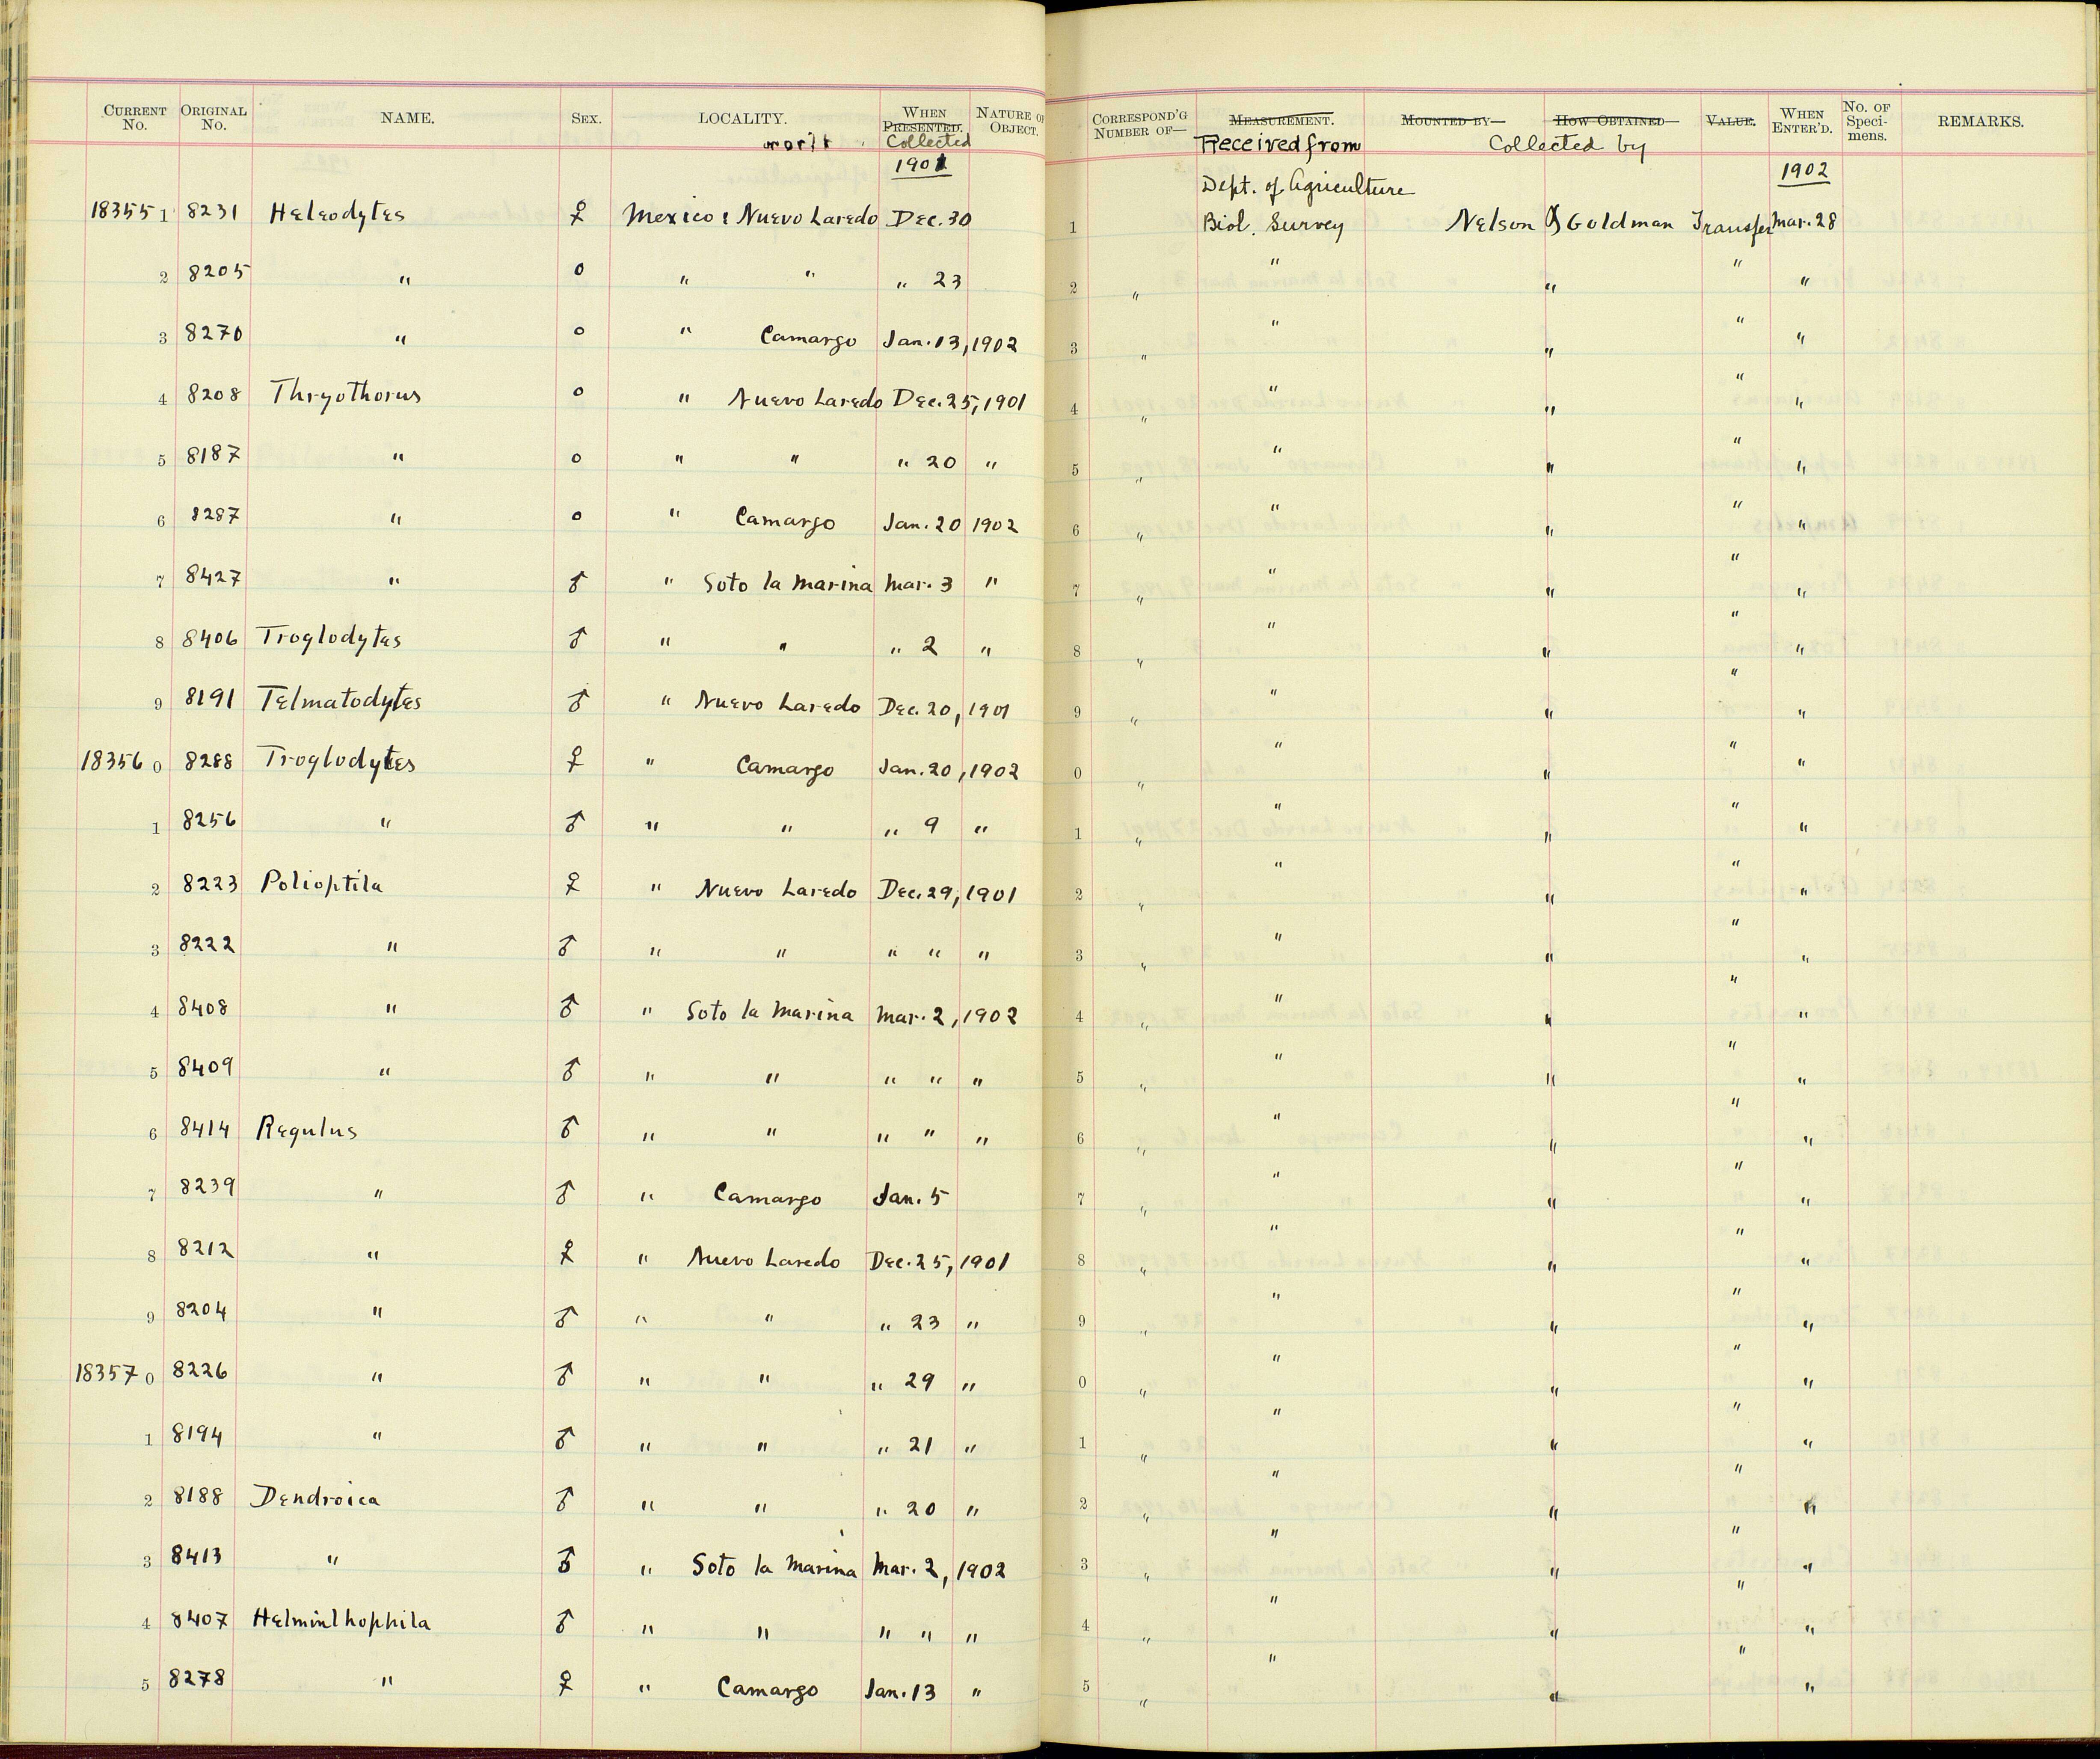 CURRENT No. ORIGINAL No. NAME. SEX. LOCALITY. WHEN PRESENTED. NATURE OF OBJECT. CORRESPOND'G NUMBER OF— MEASUREMENT. MOUNTED BY— HOW OBTAINED— VALUE. WHEN ENTER'D. No. OF Speci-mens. REMARKS.
Collected Received from Collected by
1901 1902
Dept. of Agriculture
18355 1 8231 Heleodytes ♀ Mexico: Nuevo Laredo Dec. 30 1 Biol. Survey Nelson & Goldman Transfer Mar. 28
2 8205 " o " " " 23 2 " " " " "
3 8270 " o " Camargo Jan. 13, 1902 3 " " " " "
4 8208 Thryothorus o " Nuevo Laredo Dec. 25, 1901 4 " " " " "
5 8187 " o " " " 20 " 5 " " " " "
6 8287 " o " Camargo Jan. 20 1902 6 " " " " "
7 8427 " ♂ " Soto la Marina Mar. 3 " 7 " " " " "
8 8406 Troglodytes ♂ " " " 2 " 8 " " " " "
9 8191 Telmatodytes ♂ " Nuevo Laredo Dec. 20, 1901 9 " " " " "
18356 0 8288 Troglodytes ♀ " Camargo Jan. 20, 1902 0 " " " " "
1 8256 " ♂ " " " 9 " 1 " " " " "
2 8223 Polioptila ♀ " Nuevo Laredo Dec. 29, 1901 2 " " " " "
3 8222 " ♂ " " " " " 3 " " " " "
4 8408 " ♂ " Soto la Marina Mar. 2, 1902 4 " " " " "
5 8409 " ♂ " " " " " 5 " " " " "
6 8414 Regulus ♂ " " " " " 6 " " " " "
7 8239 " ♂ " Camargo Jan. 5 7 " " " " "
8 8212 " ♀ " Nuevo Laredo Dec. 25, 1901 8 " " " " "
9 8204 " ♂ " " " 23 " 9 " " " " "
18357 0 8226 " ♂ " " " 29 " 0 " " " " "
1 8194 " ♂ " " " 21 " 1 " " " " "
2 8188 Dendroica ♂ " " " 20 " 2 " " " " "
3 8413 " ♂ " Soto la Marina Mar. 2, 1902 3 " " " " "
4 8407 Helminthophila ♂ " " " " " 4 " " " " "
5 8278 " ♀ " Camargo Jan. 13 " 5 " " " " "